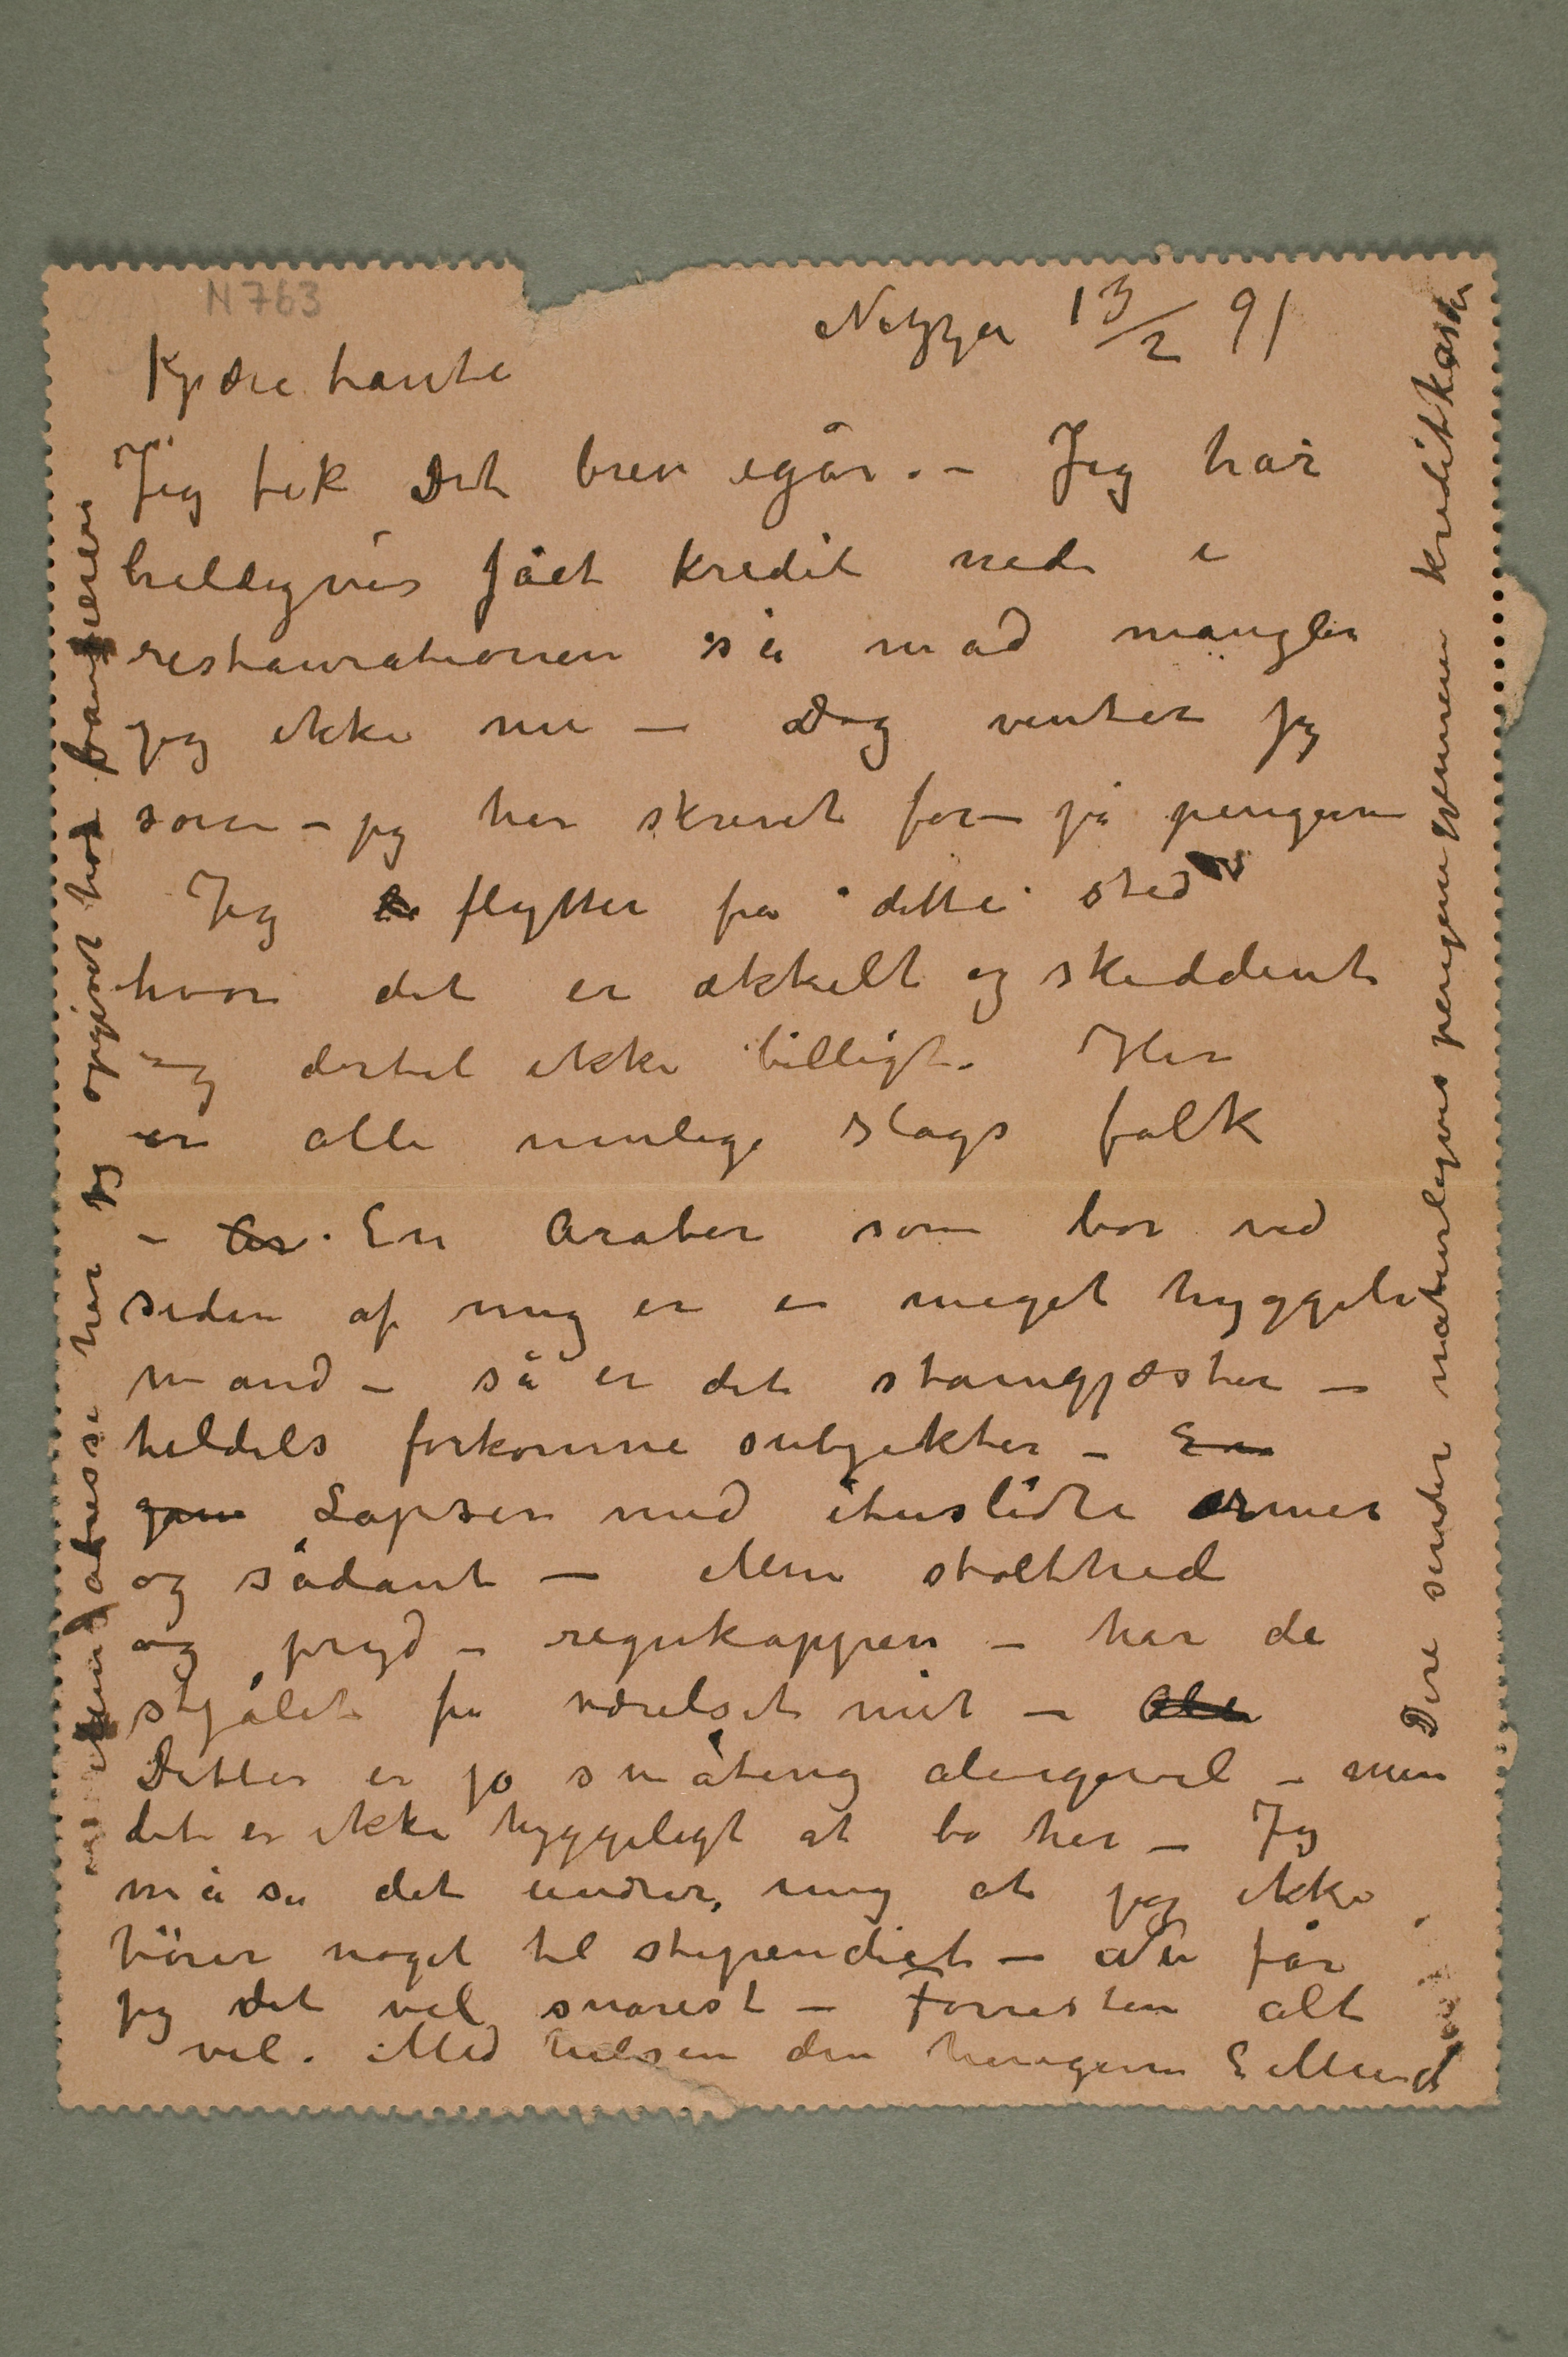 N 763
Nizza 13/2 91
Kjære tante
Jeg fik Dit brev igår. – Jeg har
heldigvis fået kredit nede i
restaurationen så mad mangler
jeg ikke nu – Dog venter jeg
som – jeg har skrevet for – på pengene
Jeg flytter fra dette sted
hvor det er ækkelt og skiddent
og dertil ikke billigt. Her
er alle mulige slags folk
– En Araber som bor ved
siden af mig er en meget hyggeli
mand – så er det stamgjæster –
heldels forkomne subjekter – En
Lapser med ituslidte ærmer
og sådant – Min stolthed
og pryd – regnkappen – har de
stjålet fra værelset mit –
Dette er jo småting alligevel – men
det er ikke hyggeligt at bo her – Jeg
må si det undrer mig at jeg ikke
hører noget til stipendiet – Nu får
jeg det vel snarest – Forresten alt
vel. Med hilsen din hengivne E Munch
Dere sender naturligvis pengene gjennem kreditkassen
Min adresse har jeg opgivet hos bankieren